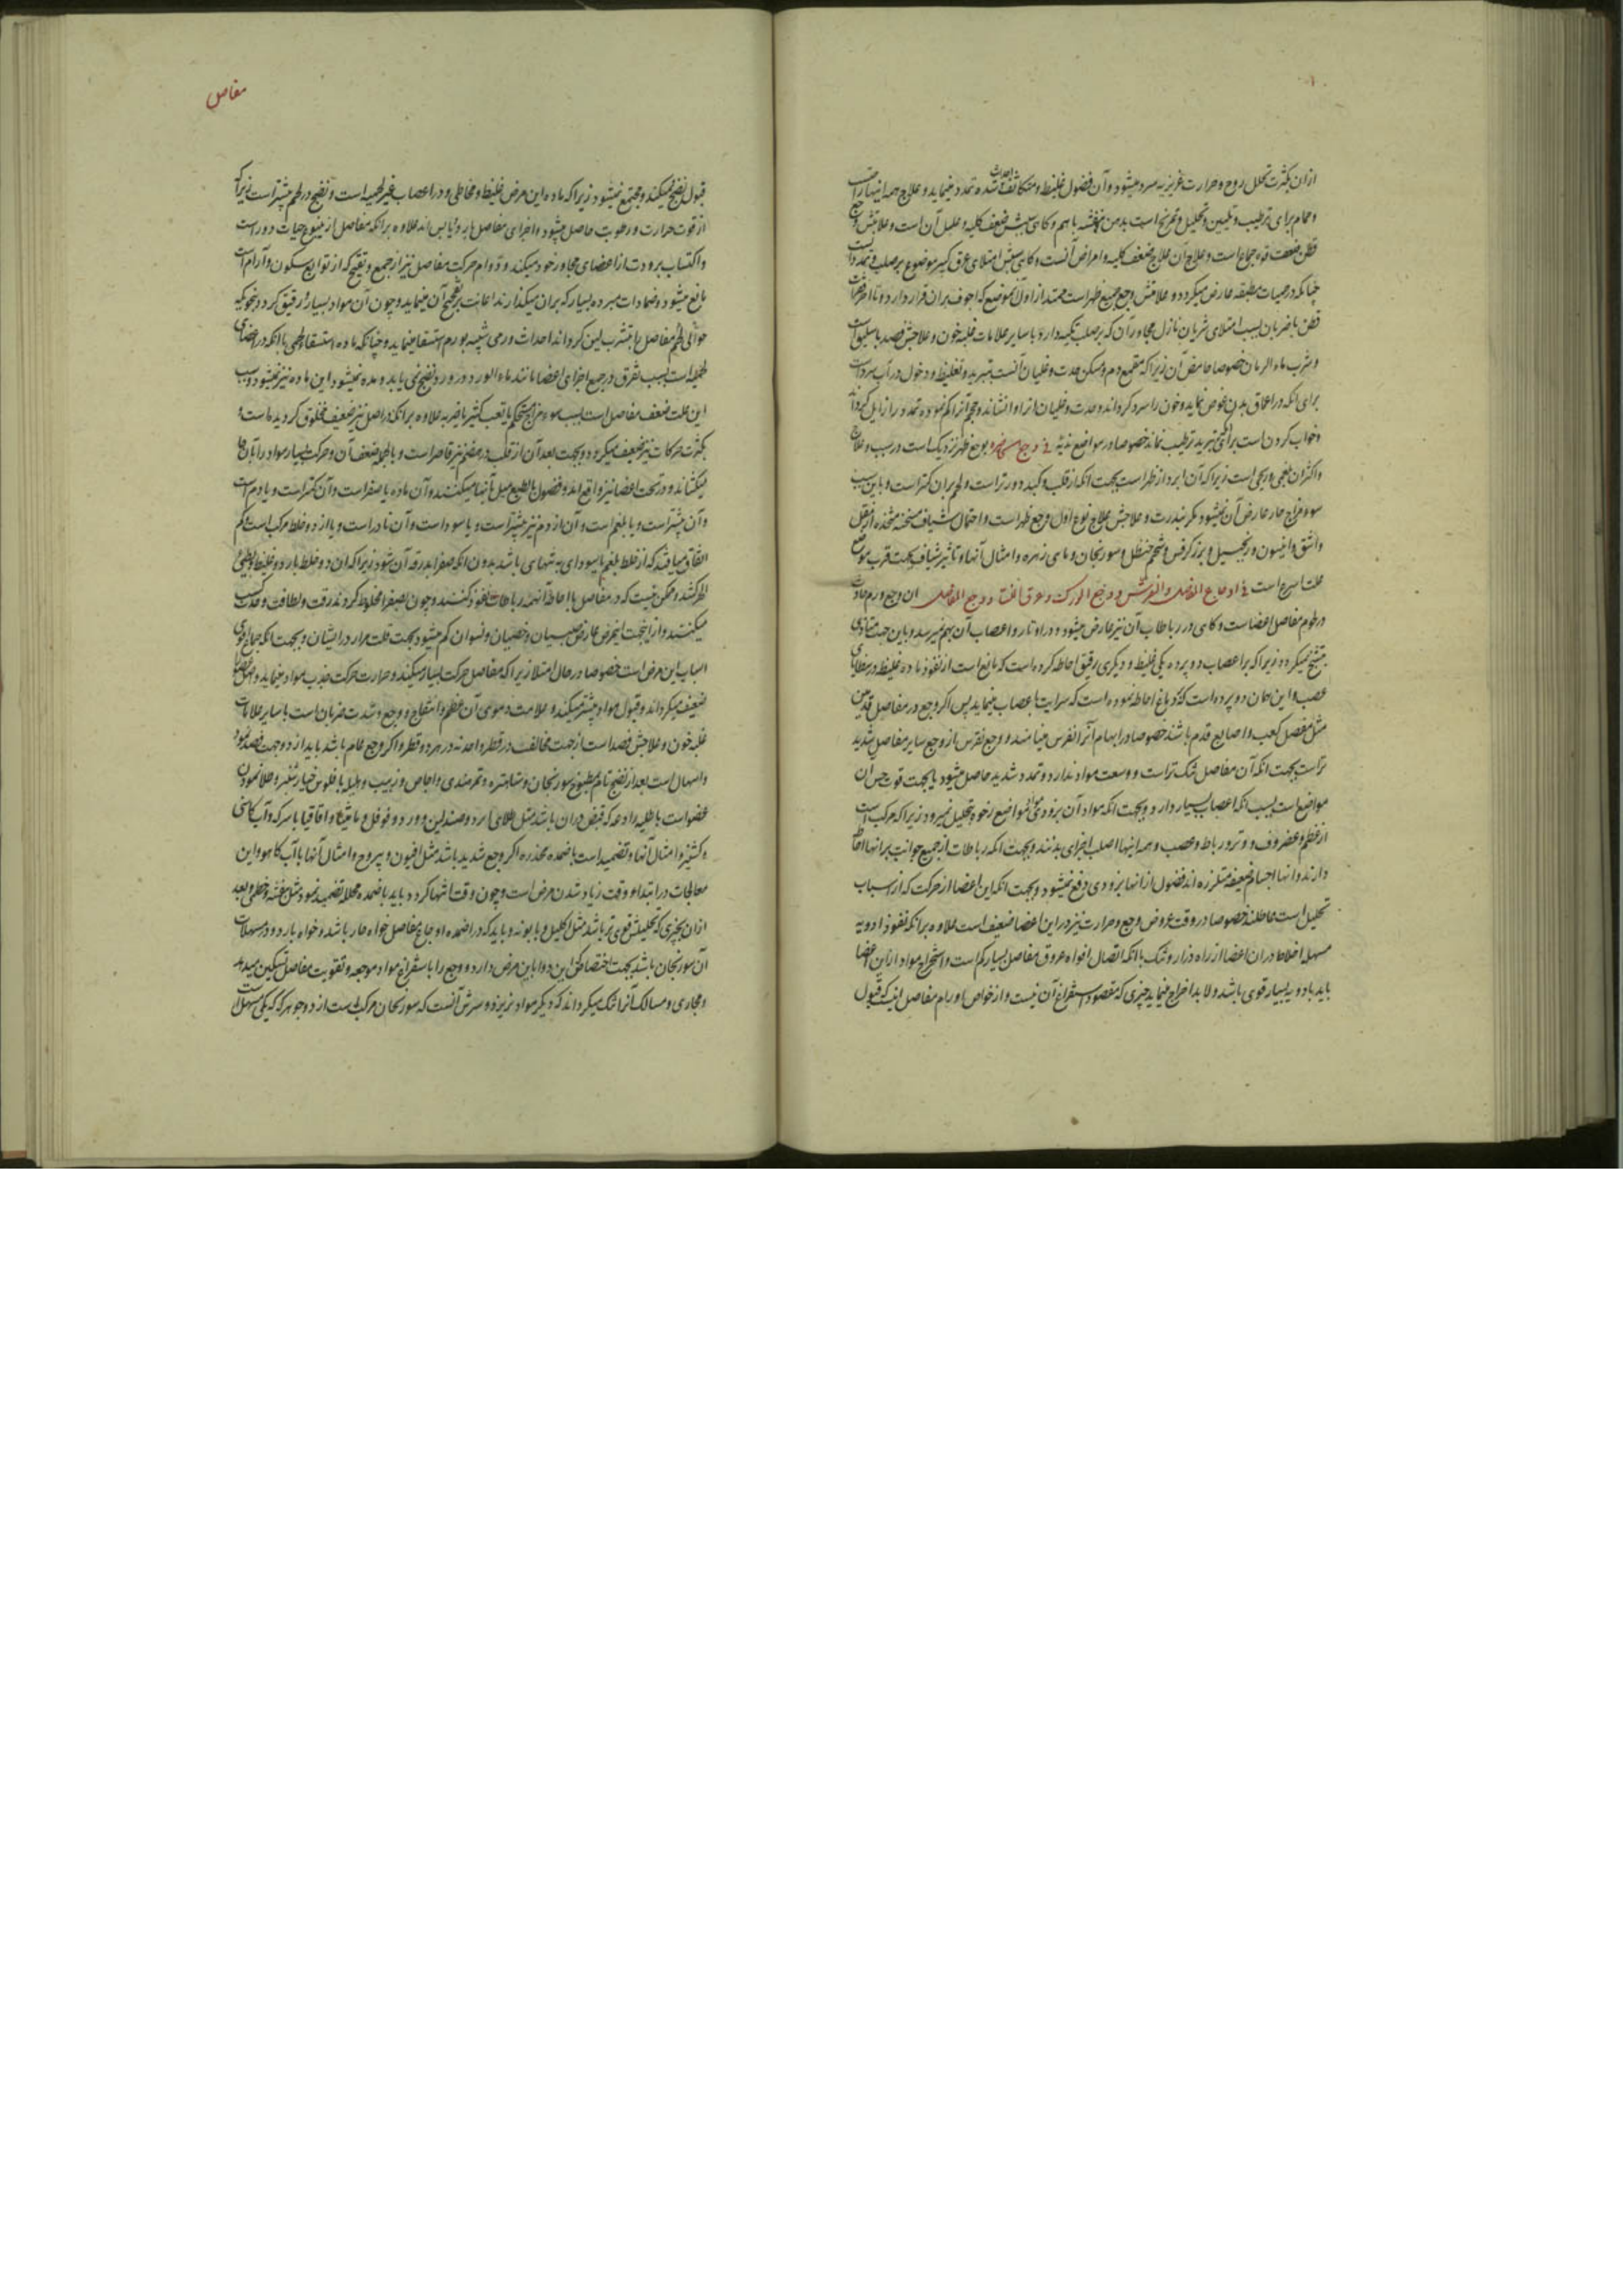 ازان بکثرت تحلل روح و حرارت غریزیه سرد میشود و آن فضول غلیظ و متکاثف شده تمدد مینماید و علاج همه اینها راحت
و حمام برای ترطیب و تلیین و تحلیل و تمریخ است بدهن بنفشه باهم و کاهی سببش ضعف کلیه و علل آن است و علامتش وجع
قطن ضعف قوه جماع است و علاج آن علاج ضعف کلیه و امراض آنست و کاهی سببش امتلای عرق کبیر موضوع بر صلب و تمدد آنست
چنانکه در حمیات مطبقه عارض میکردد و علامتش وجع جمیع ظهر است ممتد از اول موضع که اجوف بران قرار دارد تا آخر فقرات
قطن با ضربان بسبب امتلای شریان نازل مجاور آن که بر صلب تکیه دارد با سایر علامات غلبه خون و علاجش فصد باسلیق است
و شرب ماء الرمان خصوصا حامض آن زیرا که مقمع دم و مسکن حدت و غلیان آنست بتبرید و تغلیظ و دخول در آب سرد است
برای انکه در اعماق بدن غوص نماید و خون را سرد کرداند و حدت و غلیان از او فرو نشاند و حجم آنرا کم نموده تمدد را زایل کرداند
و خواب کردن است بر تبرید ترطیب نماید خصوصا در مواضع ندیه فی وجع و بوجع ظهر نزدیک است در سبب و علاج
و اکثر آن بلغمی و ریحی است زیرا که آن ابرد از ظهر است بجهت انکه از قلب و کبد دورتر است و لحم بران کمتر است و باین سبب
سوء مزاج حار عارض آن نمیشود مکر بندرت و علاجش علاج نوع اول وجع ظهر است و احتمال شیاف مسخنه متخذه از مقل
و اشق و انیسون و زنجبیل و بزر کرفس و شحم حنظل و سورنجان و ماهی زهره و امثال آنها و تاثیر شیاف بجهت قرب موضع
علت اسرع است فی اوجاع المفاصل و النقرس و وجع الورک و عرق النسا و وجع المفاصل آن وجع و ورم حادث
در لحوم مفاصل اعضاست و کاهی در رباطات آن نیز عارض میشود و در اوتار و اعصاب آن بهم میرسد و باین جهت متاذی
متشنج نمیکردد زیرا که بر اعصاب دو پرده یکی غلیظ و دیکری رقیق احاطه کرده است که مانع است از نفوذ ماده غلیظ در
عصب و این همان دو پرده است که دماغ احاطه نموده است که سرایت باعصاب مینماید پس اکر وجع در مفاصل قدمین
مثل مفصل کعب و اصابع قدم باشند خصوصا در ابهام آنرا نقرس مینامند و وجع نقرس از وجع سایر مفاصل شدید
تر است بجهت انکه آن مفاصل تنک تر است و وسعت مواد ندارد و تمدد شدید حاصل میشود یا بجهت قوت حس آن
مواضع است بسبب انکه اعصاب بسیار دارد و بجهت انکه مواد آن بزودی مواضع رخوه تحلیل نمیرود زیرا که مرکب است
از عظم و غضروف و وتر و رباط و عصب و همه اینها اصلب اجزای بدنند و بجهت انکه رباطات از جمیع جوانب بر آنها احاطه
دارند و آنها اجسام ضعیفه متلززه اند فضول از آنها بزودی دفع نمیشود و بجهت انکه این اعضا از حرکت که از اسباب
تحلیل است عاطلند خصوصا در وقت عروض وجع و حرارت نیز در این اعضا ضعیف است علاوه برانکه نفوذ ادویه
مسهله اخلاط در آن اعضا از راه دراز و تنک با انکه اتصال افواه عروق مفاصل بسیار کم است و استخراج مواد از این اعضا
باید بادویه بسیار قوی باشد و لابد اخراج مینماید چیزی که مقصود استفراغ آن نیست و از خواص اورام مفاصل اینست که قبول
مفاصل
قبول نضج نمیکند و مجتمع نمیشود زیرا که ماده این مرض غلیظ و مخاطی و در اعصاب غیر لحمیه است و نضج در لحم بیشتر است زیرا که
از قوت حرارت و رطوبت حاصل میشود و اجزای مفاصل بارد و یابس اند علاوه برانکه مفاصل از ینبوع حیات دور است
و اکتساب برودت از اعضای مجاور خود میکند و دوام حرکت مفاصل نیز از جمع و تقیح که از توابع سکون و آرام است
مانع میشود و ضمادات مبرده بسیار که بران میکذارند اعانت بر تفجیج آن مینماید و چون آن مواد بسیار رقیق کردد بنحوی که
حوالی لحم مفاصل را بتشرب لین کرداند احداث ورمی شبیه بورم استسقا مینماید و چنانکه ماده استسقاء لحمی با انکه در اعضای
لحمیه است بسبب تفرق در جمیع اجزای اعضا مانند ماء الورد در ورد نضج نمی یابد و مده نمیشود این ماده نیز نمیشود و سبب
این علت ضعف مفاصل است بسبب سوء مزاج مستحکم یا تعب کثیر یا ضربه علاوه برانکه در اصل نیز ضعیف مخلوق کردیده است و
بکثرت حرکات نیز ضعیف میکردد و بجهت بعد آن از قلب در هضم نیز قاصر است و بالجمله ضعف آن و حرکت بسیار مواد را بآن جا
میکشاند و در تحت اعضا نیز واقع اند و فضول بالطبع میل بآنها میکنند و آن ماده یا صفراست و آن کمتر است و یا دم است
و آن بیشتر است و یا بلغم است و آن از دم نیز بیشتر است و یا سودا است و آن نادر است و یا از دو خلط مرکب است و کم
اتفاق میافتد که از خلط بلغم یا سودای به تنهایی باشد بدون انکه صفرا بدرقه آن شود زیرا که آن دو خلط بارد و غلیظ و بطیء
الحرکتند و ممکن نیست که در مفاصل با احاطه آنهمه رباطات نفوذ کنند و چون بصفرا مخلوط کردند رقت و لطافت و حدت کسب
میکنند و از اینجهت این مرض عارض صبیان و خصیان و نسوان کم میشود بجهت قلت مرار در ایشان و بجهت انکه جماع اقوی
اسباب این مرض است خصوصا در حال امتلا زیرا که مفاصل حرکت بسیار میکند و حرارت حرکت جذب مواد مینماید و مفاصل را
ضعیف میکرداند و قبول مواد بیشتر میکند و علامت دموی آن عظم و انتفاخ و وجع و شدت ضربان است با سایر علامات
غلبه خون و علاجش فصد است از جهت مخالف در قطر واحد نه در هر دو قطر و اکر وجع عام باشد باید از دو جهت فصد نمود
و اسهال است بعد از نضج تام بمطبوخ سورنجان و شاهتره و تمر هندی و اجاص و زبیب و هلیله با فلوس خیار شنبر و طلا نمودن
عضو است باطلیه رادعه که قبض دران باشد مثل طلای ارد و صندلین و ورد و فوفل و مامیثا و اقاقیا با سرکه و آب کاسنی
و کشنیز و امثال آنها و تضمید است باضمده مخدره اکر وجع شدید باشد مثل افیون و یبروح و امثال آنها با آب کاهو و این
معالجات در ابتدا و وقت زیاد شدن مرض است و چون وقت انتها کردد باید باضمده محلله تضمید نمود مثل بنفشه و خطمی و بعد
ازان بچیزی که تحلیلش قوی تر باشد مثل اکلیل و بابونه و باید که در اضمده اوجاع مفاصل خواه حار باشد و خواه بارد و در مسهلات
آن سورنجان باشد بجهت اختصاص که این دوا باین مرض دارد و وجع را باستفراغ مواد موجعه و تقویت مفاصل تسکین میدهد
و مجاری و مسالک آنرا تنک میکرداند که دیکر مواد نریزد و سرش آنست که سورنجان مرکب است از دو جوهر که یکی مسهل است